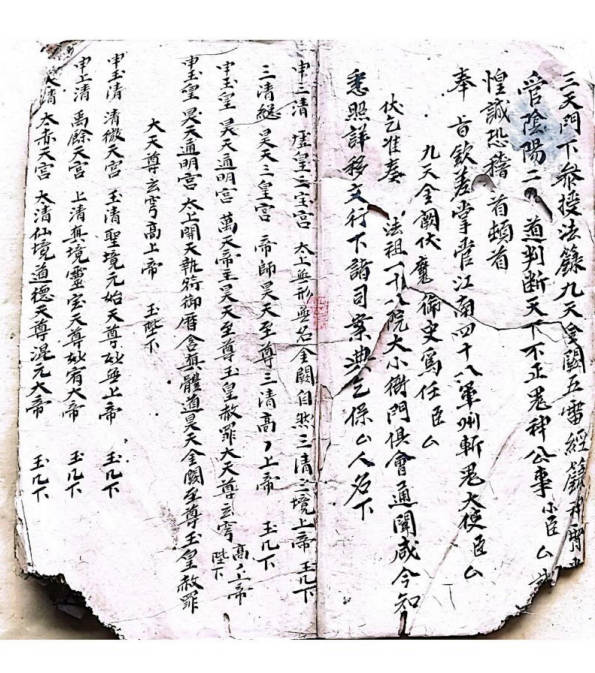 三天門下參授法籙九天金闕五雷經籙神霄
管陰陽二道判断天下不正鬼神公事小臣厶
惶誠恐稽首頓首
奉旨欽差掌管江南四十八軍州斬鬼大使臣厶
九天金闕伏魔御史寫任臣厶
伏乞准奏
法祖一十八院大小衙門俱會通聞咸今知
悉照詳移文行下諸司案典乞保厶人名下
申三清 虛皇三宝宮 太上無形無名金闕自然三清三境上帝 玉几下
三清總 昊天三皇宮 帝師昊天至尊三清高々上帝 玉几下
申玉皇 昊天通明宮 萬天帝主昊天至尊玉皇赦罪大天尊玄穹高々上帝 陛下
申玉皇 昊天通明宮 太上開天執符御曆含真體道昊天金闕至尊玉皇赦罪
大天尊玄穹高上帝 玉陛下
申玉清 清微天宮 玉清聖境元始天尊妙無上帝 玉几下
申上清 禹餘天宮 上清真境靈宝天尊妙有大帝 玉几下
太清 太赤天宮 太清仙境道德天尊混元大帝 玉几下